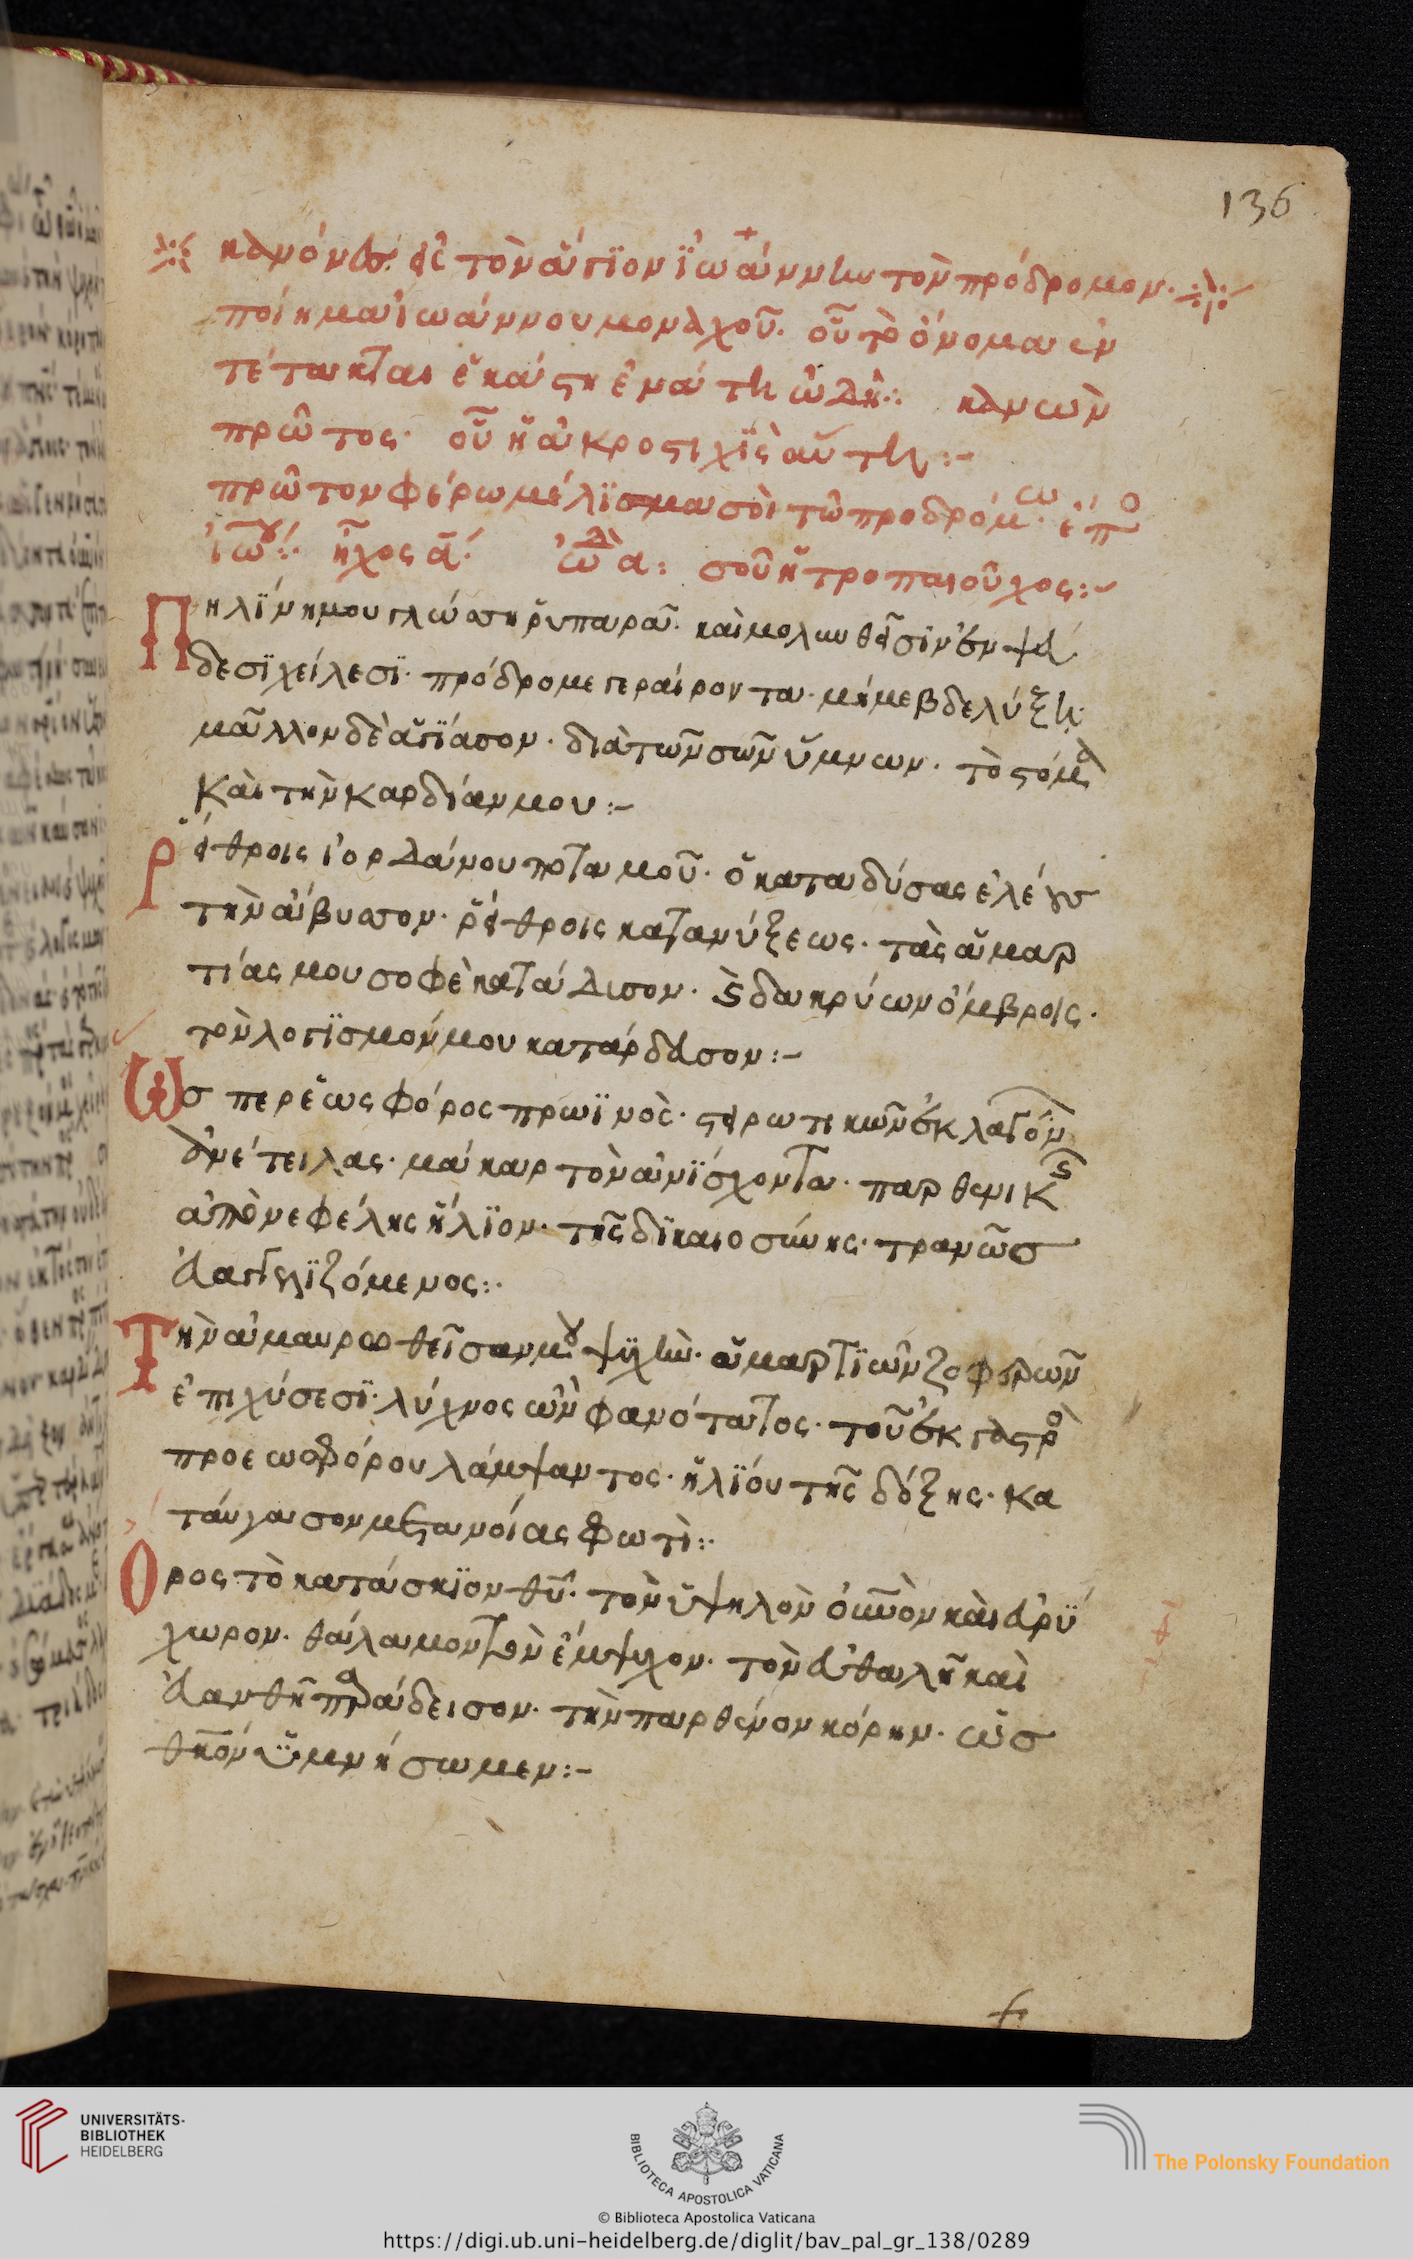 136
κανόνες εἰς τὸν ἅγϊον ϊωάννην τὸν πρόδρομον·
ποίημα ἰωάννου μοναχοῦ· οὗ τὸ ὄνομα ἐν
τέτακται ἑκάστη ἐνάτη ὠδῆ: κανὼν
πρῶτος· οὗ ἡ ἀκροστιχῒς αὕτη:-
πρῶτον φέρω μέλϊσμα σοὶ τῶ προδρόμω·
ἦχος α· ὠδὴ α: σοῦ ἡ τροπαιοῦχος:-
Πηλΐνη μου γλώσση ῥυπαρᾶ· καὶ μολυνθεῖσϊν ἐν ψεύ
δεσϊ χείλεσϊ· πρόδρομε γεραίροντα· μή με βδελύξη·
μᾶλλον δὲ ἁγϊάσον· διὰ τῶν σῶν ὕμνων· τὸ στόμα
καὶ τὴν καρδίαν μου:-
Ῥείθροις ἰορδάνου ποταμοῦ· ὁ καταδύσας ἐλέους
τὴν ἄβυσσον· ῥείθροις κατανύξεως· τὰς ἁμαρ
τίας μου σοφὲ κατάδυσον· καὶ δακρύων ὄμβροις·
τὸν λογϊσμόν μου κατάρδευσον:-
Ὥσπερ ἑωσφόρος πρωϊνὸς· στειρωτικῶν ἐκ λαγόνων
ἀνέτειλας· μάκαρ τὸν ἀνΐσχοντα· παρθενικῆς
ἀπὸ νεφέλης ἥλϊον· τῆς δϊκαιοσύνης· τρανῶς
εὐαγγελϊζόμενος:·
Τὴν ἀμαυρωθεῖσαν μου ψυχὴν· ἁμαρτϊῶν ζοφερῶν
ἐπιχύσεσϊ· λύχνος ὢν φανότατος· τοῦ ἐκ γαστρὸς
πρὸ ἑωσφόρου λάμψαντος· ἡλϊόυ τῆς δόξης· κα
τάυγασον μετανοίας φωτὶ:·
Ὄρος τὸ κατάσκϊον θυ· τὸν ὑψηλὸν οὐνὸν καὶ εὐρΰ
χωρον· θάλαμον τὸν ἔμψυχον· τὸν εὐθαλῆ καὶ
εὐανθῆ παράδεισον· τὴν παρθένον κόρην· ὡς
θκον ὑμνήσωμεν:-
UNIVERSITÄTS-
BIBLIOTHEK
HEIDELBERG
BIBLIOTECA APOSTOLICA VATICANA
The Polonsky Foundation
© Biblioteca Apostolica Vaticana
https://digi.ub.uni-heidelberg.de/diglit/bav_pal_gr_138/0289